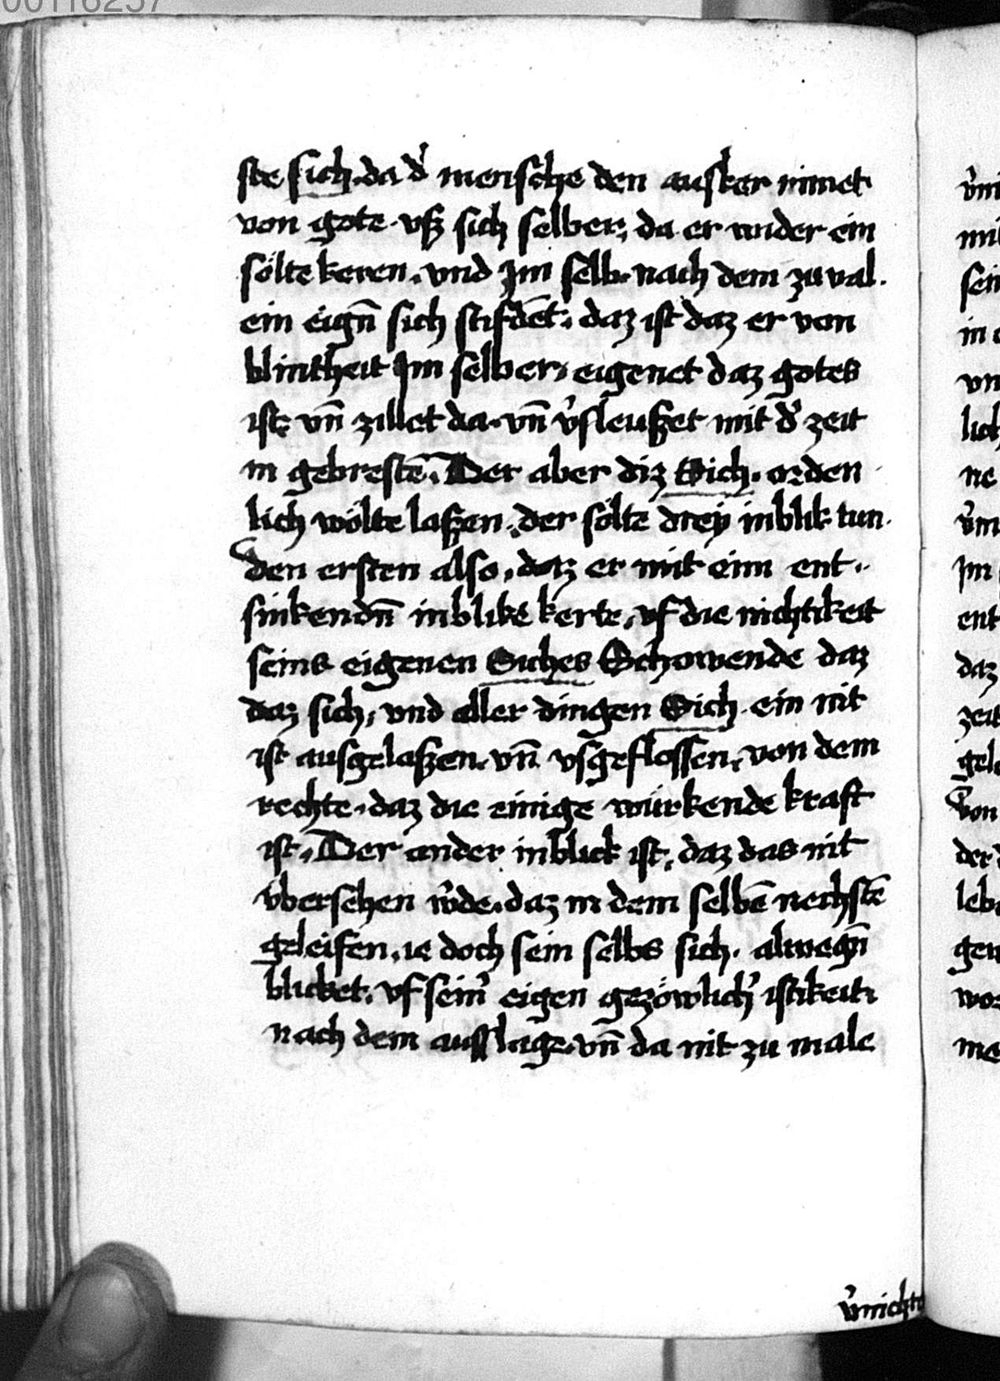 00116257
ste sich. da d' mensche den ausker nimet
von gote. vsz sich selber, da er wider ein
sölte keren. vnd Jm selb. nach dem zuval.
ein eign̄ sich stifdēt. daz ist daz er von
blintheit Jm selber, eigenet daz gotes
ist. vn̄ zillet da. vn̄ v̓sleuszet mit d' zeit
in gebrestē. Der aber diz Sich. orden
lich wölte laszen. der sölte drey inblik tun.
den ersten also, daz er mit eim ent-
sinkendn̄ inblike kerte, vf die nichtikeit
seins eigenen Siches Schowende daz
daz sich, vnd aller dingen Sich. ein nit
ist ausgelaszen. vn̄ vsgeflossen, von dem
rechte. daz die einige würkende kraft
ist. Der ander inblick ist, daz das nit
v̓bersehen w̓de. daz in dem selbē nechstē
geleisen. ie doch sein selbs sich. alwegn̄
blicket. vf sein̓ eigen gezöwlich̓ istikeit.
nach dem ausslage. vn̄ da nit zu male
v̓nicht